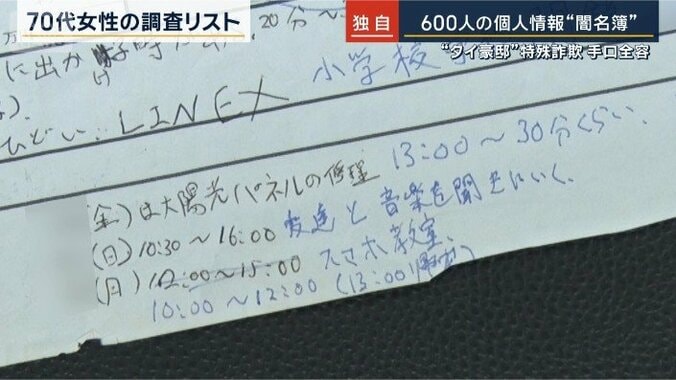 70代女性の調査リスト
独自
600人の個人情報“闇名簿”
“タイ豪邸”特殊詐欺 手口全容
20分〜
に出か
小学校
ひどい。LINE X
(金)は太陽光パネルの修理 13:00〜30分くらい.
(日)10:30〜16:00 友達と音楽を聞きにいく、
(月)12:00〜15:00 スマホ教室、
10:00〜12:00 (13:00